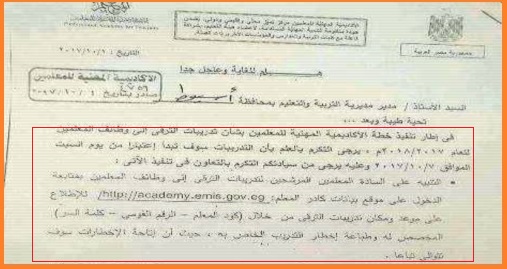 الأكاديمية المهنية للمعلمين مركز تميز محلي وإقليمي ودولي، يضمن
جودة منظومة التنمية المهنية المستدامة، لأعضاء هيئة التعليم، بشراكة
جمهورية مصر العربية
التاريخ: ٢٠١٧/١٠/١
هـــام للغاية وعاجل جدا
الأكاديمية المهنية للمعلمين
صادر بتاريخ ٢٠١٧/١٠/١
السيد الأستاذ / مدير مديرية التربية والتعليم بمحافظة / أسيوط
تحية طيبة وبعد ...
في إطار تنفيذ خطة الأكاديمية المهنية للمعلمين بشأن تدريبات الترقي إلى وظائف المعلمين
للعام ٢٠١٨/٢٠١٧م . يرجى التكرم بالعلم بأن التدريبات سوف تبدأ إعتبارا من يوم السبت
الموافق ٢٠١٧/١٠/٧ وعليه يرجى من سيادتكم التكرم بالتعاون في تنفيذ الأتى :
• التنبيه على السادة المعلمين المرشحين لتدريبات الترقي إلى وظائف المعلمين بمتابعة
الدخول على موقع بيانات كادر المعلم: http://academy.emis.gov.eg/ للإطلاع
على موعد ومكان تدريبات الترقي من خلال (كود المعلم - الرقم القومى - كلمة السر)
المخصص له وطباعة إخطار التدريب الخاص به ، حيث أن إتاحة الإخطارات سوف
تتوالى تباعا .